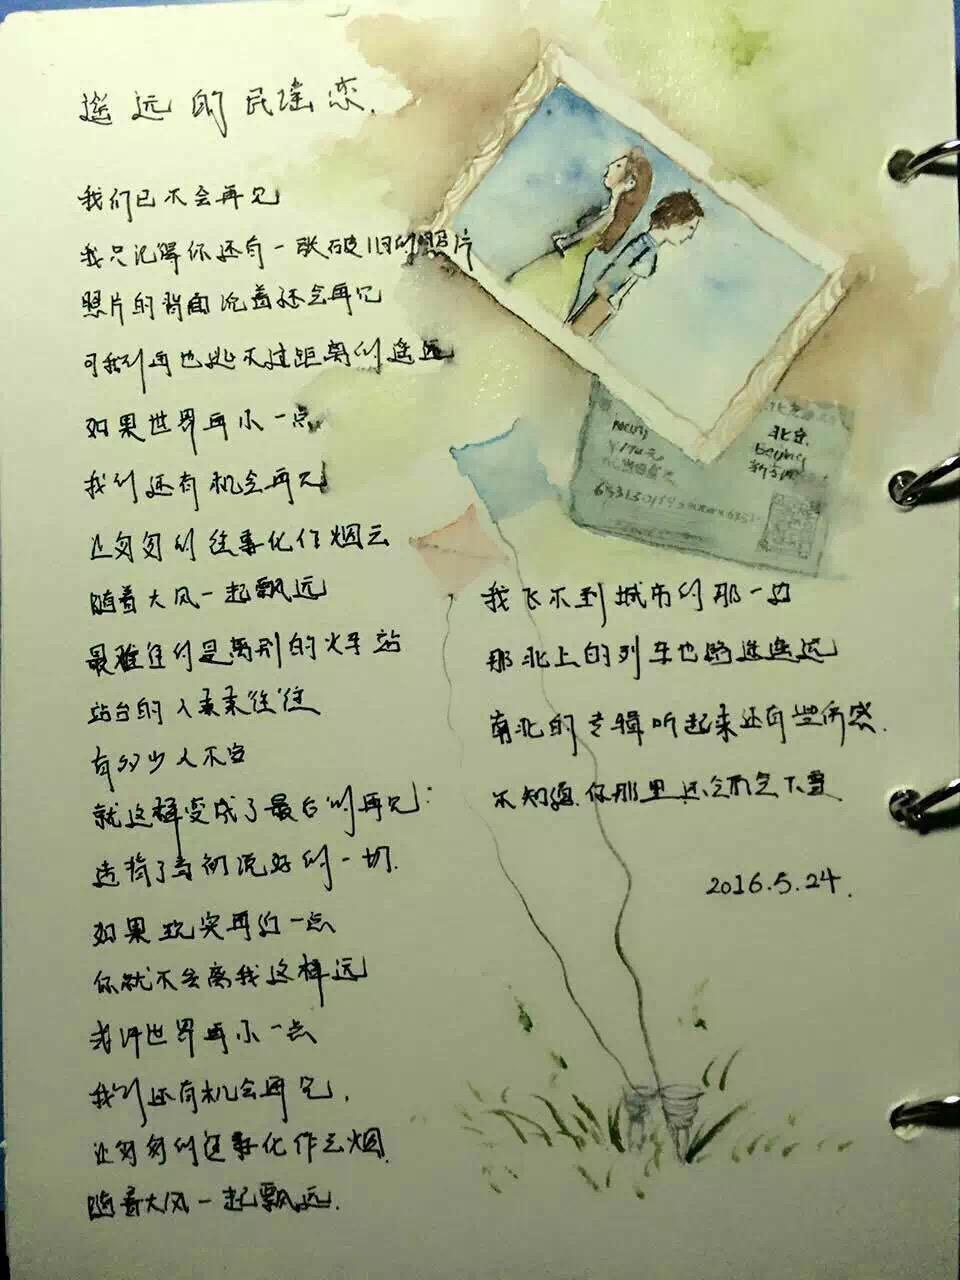 遥远的民谣恋.
我们已不会再见
我只记得你还有一张破旧的照片
照片的背面沉着还会再见
可我们再也逃不过距离的遥远
如果世界再小一点
我们还有机会再见
让匆匆的往事化作烟云
随着大风一起飘远
最难住的是离别的火车站
站台的人来来往往
有多少人不安
就这样变成了最后的再见
违背了当初说好的一切.
如果现实再近一点
你就不会离我这样远
或许世界再小一点
我们还有机会再见.
让匆匆的往事化作云烟
随着大风一起飘远.
北京
Beijing
我飞不到城市的那一边
那北上的列车也路途遥远
南北的专辑听起来还有些伤感.
不知道你那里还会不会下雪
2016.5.24.